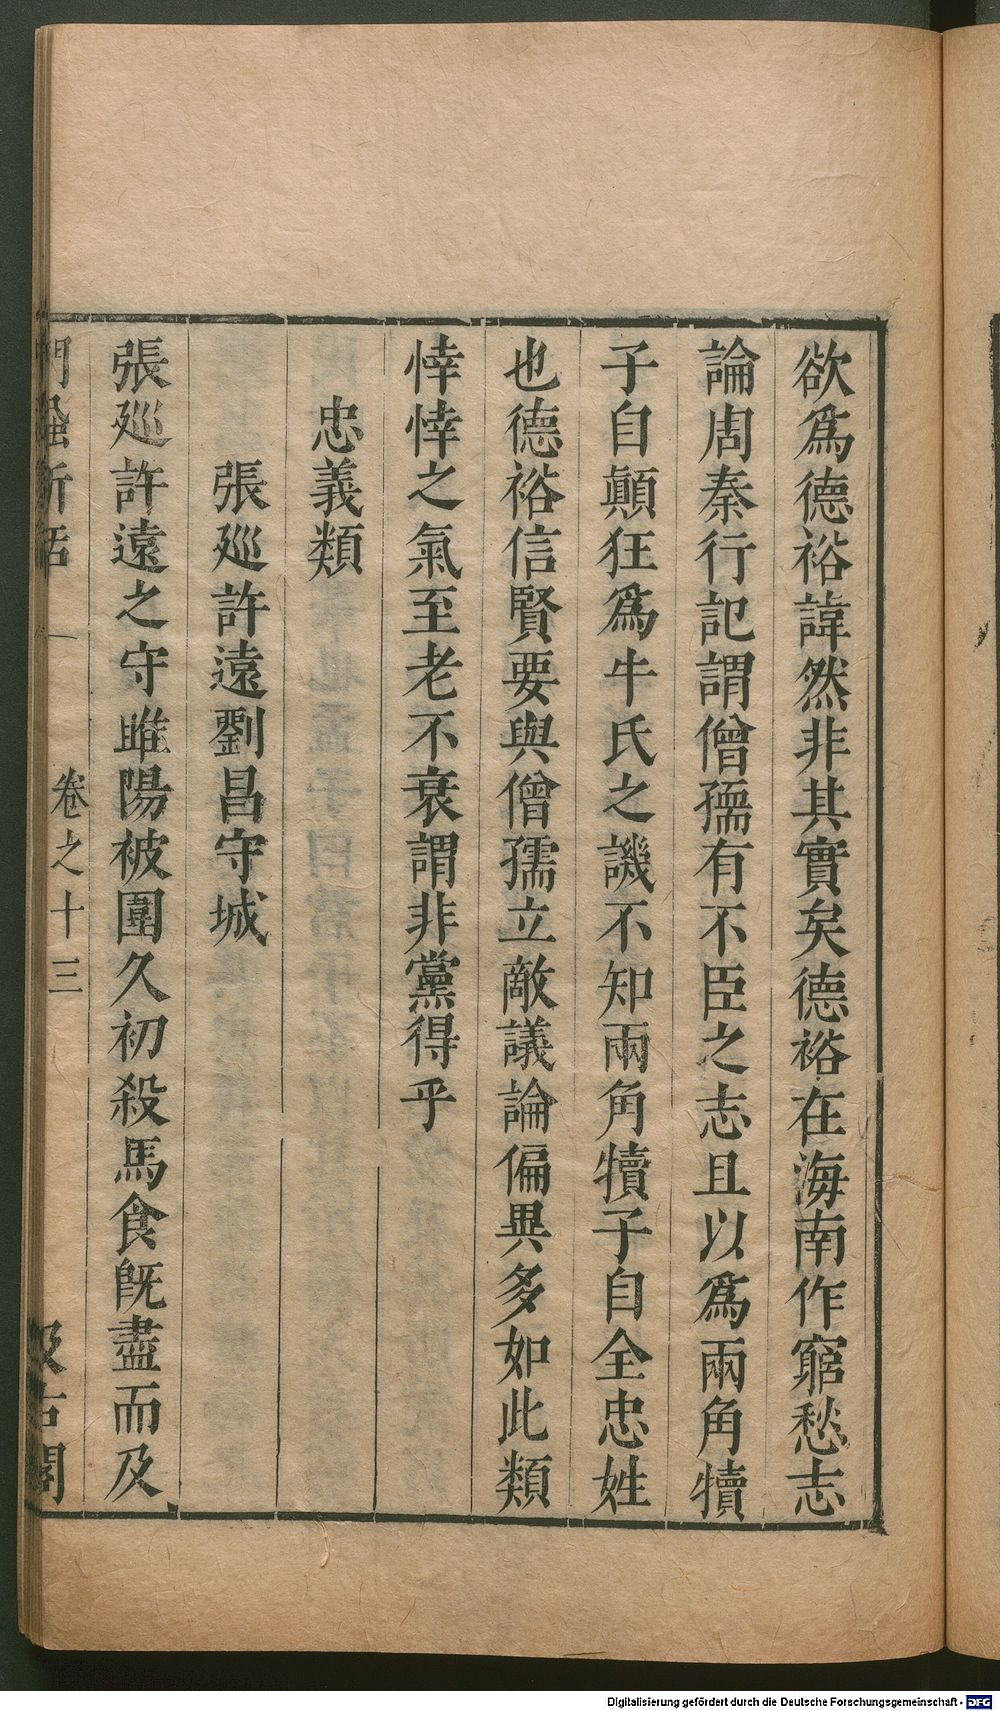 欲爲德裕諱然非其實矣德裕在海南作窮愁志
論周秦行記謂僧孺有不臣之志且以爲兩角犢
子自顛狂爲牛氏之譏不知兩角犢子自全忠姓
也德裕信賢要與僧孺立敵議論偏異多如此類
悻悻之氣至老不衰謂非黨得乎
忠義類
張廵許遠劉昌守城
張廵許遠之守睢陽被圍久初殺馬食旣盡而及
捫蝨新話
卷之十三
汲古閣
Digitalisierung gefördert durch die Deutsche Forschungsgemeinschaft - DFG